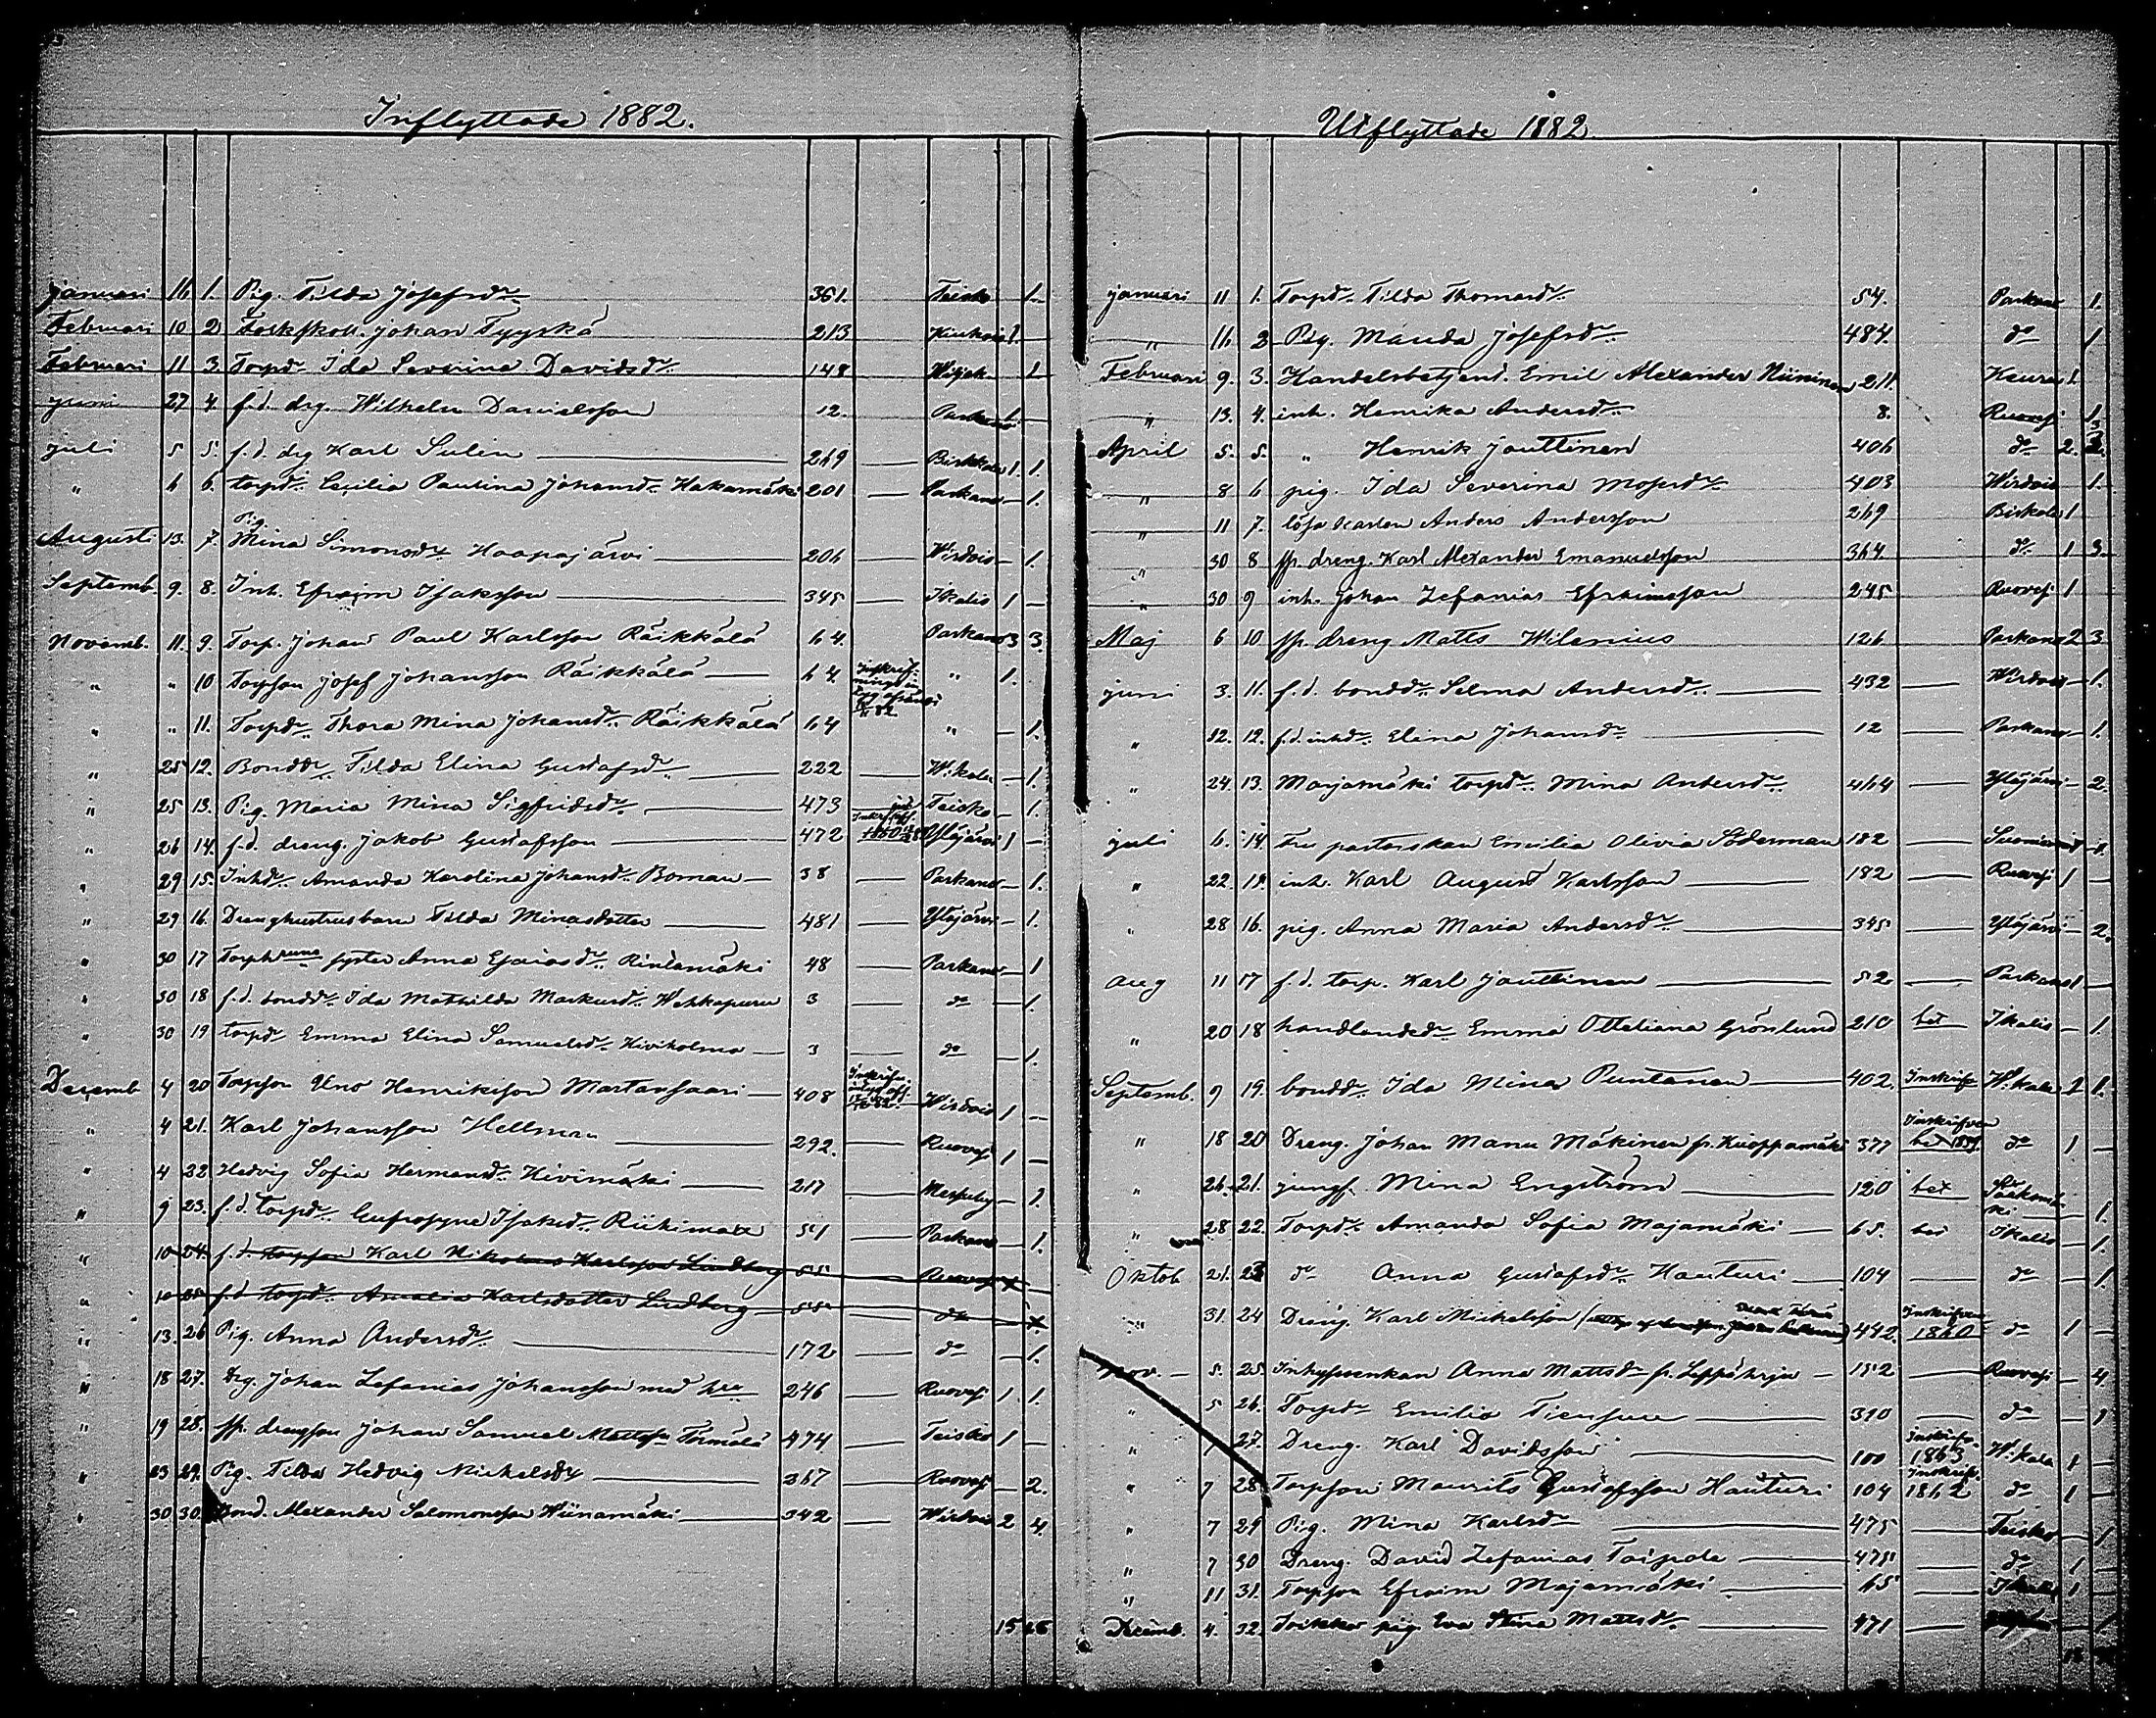 Inflyttade 1882.
Januari 11 1. Pig. Tilda Josefsdr 361. Teisko 1.
Februari 10 2 Johan Tyyskä 213 1.
Februari 11 3 Torpdr Ida Severina Davidsdr 148 1
Juni 27 4. f.d. drg. Wilhelm Danielsson 12. Parkano 1.
Juli 5 5. f.d. drg Karl Sulin 269 Birkkala 1. 1.
" 6 6. torpdr Cecilia Paulina Johansdr Hakamäki 201 Parkano 1.
Pig.
Augusti 13. 7. Mina Simonsdr Haapajärvi 206 Wirdois 1.
Septemb. 9. 8. Inh. Efraim Isaksson 345 Ikalis 1
Novemb. 11. 9. Torp. Johan Paul Karlsson Räikkälä 64. Parkano 3 3.
" " 10 Torpson Josef Johansson Räikkälä 64. " 1.
" " 11. Torpdr Thora Mina Johansdr Räikkälä 64 " 1.
" 25 12. Bonddr Tilda Elina Gustafsdr 222 W.kala 1.
" 25 13. Pig. Maria Mina Sigfridsdr 473 Teisko 1.
" 26 14. f.d. dreng. Jakob Gustafsson 472 Ylöjärvi 1
" 29 15. Inhdr Amanda Karolina Johansdr Boman 38 Parkano 1.
" 29 16. Drenghustrus barn Tilda Minasdotter 481 Ylöjärvi 1.
" 30 17 syster Anna Esaiasdr Rintamäki 48 Parkano 1
" 30 18 f.d. bonddr Ida Mathilda Markusdr Wehkapuru 3 do 1.
" 30 19 torpdr Emma Elina Samuelsdr Kiviholma 3 do 1.
Decemb 4 20 Torpson Uno Henriksson Martansaari 408 Wirdois 1
" 4 21. Karl Johansson Hellman 292. Ruovesi 1
" 4 22 Hedvig Sofia Hermansdr Kivimäki 217 Messuby 1.
" 9 23. f.d. torpdr Eufrosyne Isaksdr Riikimaa 51 Parkano 1.
" 10 24. f.d. torpson Karl Nikolaus Karlsson Lindberg 55 Ruovesi
" 10 25. f.d torpdr Amalia Karlsdotter Lindberg 55 do
" 13. 26 Pig. Anna Andersdr 172 do 1.
" 18 27. Drg. Johan Zefanias Johansson med hru 246 Ruovesi 1. 1.
" 19 28. sp. drengson Johan Samuel Mattsson Törmälä 474 Teisko 1
" 23 29. Pig. Tilda Hedvig Mickelsdr 367 Ruovesi 2.
" 30 30. Bond. Alexander Salomonsson Wiinamäki 342 Wirdois 2 4.
15
Utflyttade 1882.
Januari 11 1. Torpdr Tilda Thomasdr 54. Parkano 1.
" 11 2 Pig. Manda Josefsdr 484. do 1
Februari 9. 3. Handelsbetjent. Emil Alexander Niininen 211. Keuru 1.
" 13. 4. inh. Henrika Andersdr 8. Ruovesi 1
April 5. 5. " Henrik Jouttinen 406 do 2.
" 8 6 pig. Ida Severina Mosesdr 403 Wirdois 1.
" 11 7. lösa karlen Anders Andersson 269 Birkala 1
" 30 8 sp. dreng. Karl Alexander Emanuelsson 364. do 1 3.
" 30 9 inh. Johan Zefanias Efraimsson 245 Ruovesi 1
Maj 6 10 sp. dreng Matts Wilenius 126. Parkano 2 3.
Juni 3. 11. f.d. bonddr Selma Andersdr 432 Wirdois 1.
" 12. 12. f.d. inhdr Elina Johansdr 12 Parkano 1.
" 24. 13. Marjamäki torpdr Mina Andersdr 464 Ylöjärvi 2.
Juli 6. 14 Fru pastorskan Emilia Olivia Söderman 182 Suoniemi
" 22. 15. inh. Karl August Karlsson 182 Ruovesi 1
" 28 16. pig. Anna Maria Andersdr 345 Ylöjärvi 2.
Aug 11 17 f.d. torp. Karl Jouttinen 52 Parkano 1
" 20 18 handlandedr Emma Otteliana Grönlund 210 bet Ikalis 1.
Septemb. 9 19. bonddr Ida Mina Puntanen 402. Inskrifn W.kala 1.
Inskrifven
" 18 20 Dreng. Johan Manu Mäkinen fr. Kuoppamäki 377 do 1
" 26. 21. jungf. Mina Engström 120 bet 1.
" 28 22. Torpdr Amanda Sofia Majamäki 65. bet Ikalis 1.
Oktob 21. 23 do Anna Gustafsdr Hauturi 104 do 1.
" 31. 24 Dreng. Karl Mickelsson 442. Inskrifven 1860 do 1
Nov. 5. 25. Inhysenkan Anna Mattsdr fr. Leppährju 152 Ruovesi 4
" 5 26. Torpdr Emilia Tiensuu 310 do 1
" 27. Dreng. Karl Davidsson 100 Inskrifn. 1863 W.kala 1
" 7 28 Torpson Maurits Gustafsson Hauturi 104 Inskrifn. 1862 do 1
" 7 29 Pig. Mina Karlsdr 475 Teisko 1
" 7 30 Dreng. David Zefanias Taipale 475 do 1
" 11 31. Torpson Efraim Majamäki 65 Ikalis 1
Decemb. 4. 32. pig Eva Stina Mattsdr 471